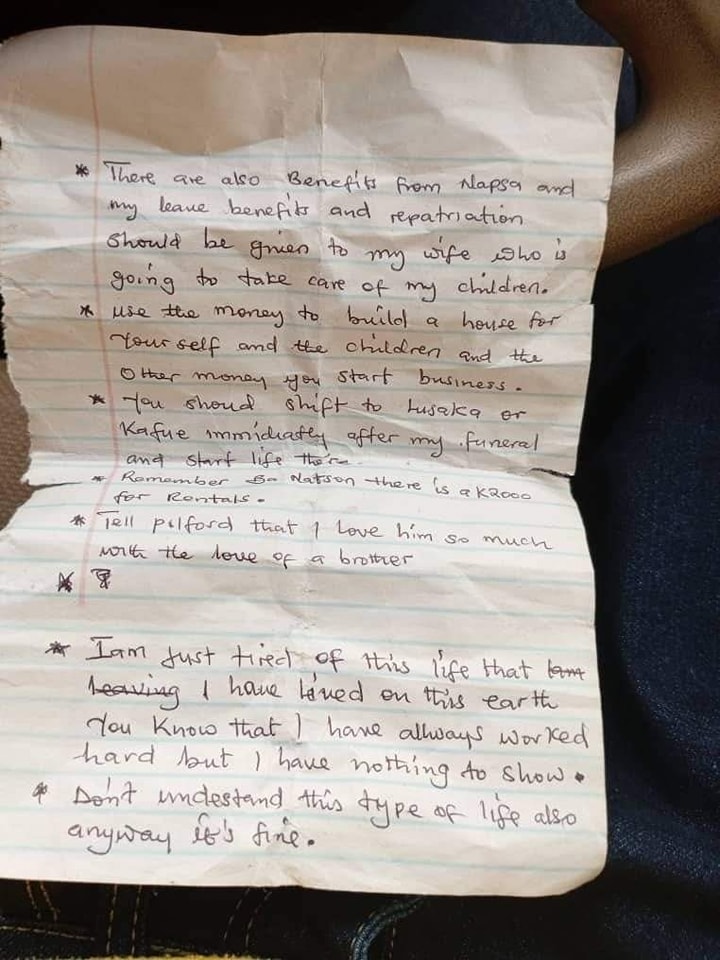 * There are also Benefits from Napsa and
my leave benefits and repatriation
should be given to my wife who is
going to take care of my children.
* use the money to build a house for
Your self and the children and the
Other money you start business.
* You shoud shift to Lusaka or
Kafue immidiatly after my funeral
and start life there
* Remember Ba Natson there is a K2000
for Rentals.
* Tell pilford that I love him so much
with the love of a brother
*
* Iam just tired of this life that
leaving I have lived on this earth
You Know that I have allways worked
hard but I have nothing to show.
* Don't undestand this type of life also
anyway it's fine.